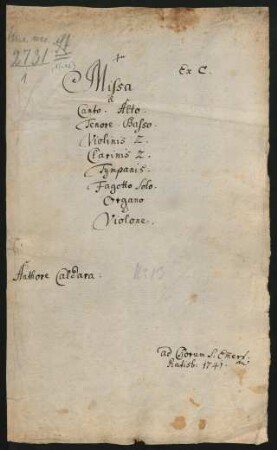 2731
1
Ex C.
Missa
à
Canto. Alto.
Tenore. Basso.
Violinis 2.
Clarinis 2.
Tympanis.
Fagotto Solo.
Organo
Violone.
Authore Caldara:
ad Chorum S. Emer
Ratisb: 1741.